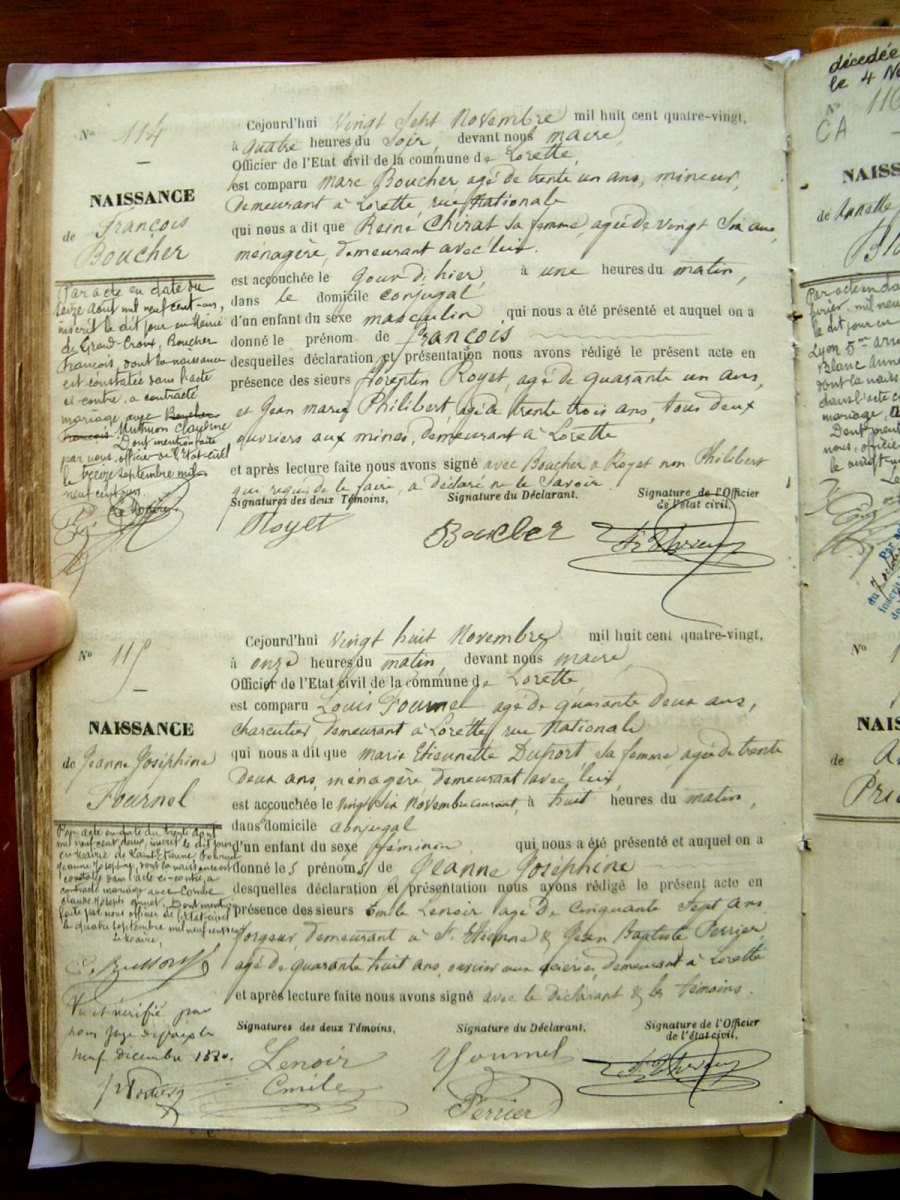 N° 114
NAISSANCE
de François
Boucher
Par acte en date du
seize août mil neuf cent un,
inscrit le dit jour en Mairie
de Grand-Croix, Boucher
François, dont la naissance
est constatée dans l'acte
ci-contre, a contracté
mariage avec Boucher
François Muthion Claudine
Dont mention faite
par nous, officier de l'Etat-civil
le treize septembre mil
neuf cent un.
Le Maire.
Cejourd'hui vingt sept Novembre mil huit cent quatre-vingt,
à quatre heures du soir, devant nous maire,
Officier de l'Etat civil de la commune de Lorette,
est comparu Marc Boucher, agé de trente un ans, mineur,
demeurant à Lorette rue Nationale
qui nous a dit que Reine Chirat sa femme, agée de vingt six ans,
ménagère, demeurant avec lui.
est accouchée le jour d'hier, à une heures du matin,
dans le domicile conjugal
d'un enfant du sexe masculin qui nous a présenté et auquel on a
donné le prénom de François
desquelles déclaration et présentation nous avons rédigé le présent acte en
présence des sieurs Florentin Royet, agé de quarante un ans,
et Jean marie Philibert, agé de trente trois ans, tous deux
ouvriers aux mines, demeurant à Lorette
et après lecture faite nous avons signé avec Boucher & Royet non Philibert
qui requis de le faire, a déclaré ne le savoir.
Signatures des deux Témoins, Signature du Déclarant. Signature de l'Officier
de l'état civil.
Royet Boucher
N° 115
NAISSANCE
de Jeanne Joséphine
Fournel
Par acte en date du trente août
mil neuf cent deux, inscrit le dit jour
en Mairie de Saint-Etienne, Fournel
Jeanne Joséphine, dont la naissance est
constatée dans l'acte ci-contre, a
contracté mariage avec Combe
Claude Joseph . Dont mention
faite par nous officier de l'Etat-civil
le quatre septembre mil neuf cent deux
Le Maire,
Vu et vérifié par
nous Juge de paix le
neuf décembre 1880.
Cejourd'hui vingt huit Novembre mil huit cent quatre-vingt,
à onze heures du matin, devant nous maire,
Officier de l'Etat civil de la commune de Lorette
est comparu Louis Fournel agé de quarante deux ans,
charcutier, demeurant à Lorette, rue Nationale
qui nous a dit que Marie Etiennette Duport, sa femme, agée de trente
deux ans, ménagère demeurant avec lui
est accouchée le vingt six Novembre courant, à huit heures du matin,
dans domicile conjugal
d'un enfant du sexe féminin qui nous a été présenté et auquel on a
donné les prénoms de Jeanne Joséphine
desquelles déclaration et présentation nous avons rédigé le présent acte en
présence des sieurs Emile Lenoir agé De Cinquante Sept ans
forgeur demeurant à St. Etienne & Jean Baptiste Perrier
agé de quarante huit ans, ouvrier aux aciéries, demeurant à Lorette
et après lecture faite nous avons signé avec le Déclarant & les témoins.
Signatures des deux Témoins, Signature du Déclarant, Signature de l'Officier
de l'état civil.
Lenoir Fournel
Emile
Perrier
décédée
le 4
N° 116
CA
NAISS
de Annette
Lyon 5me
mariage,
N°
NAIS
de